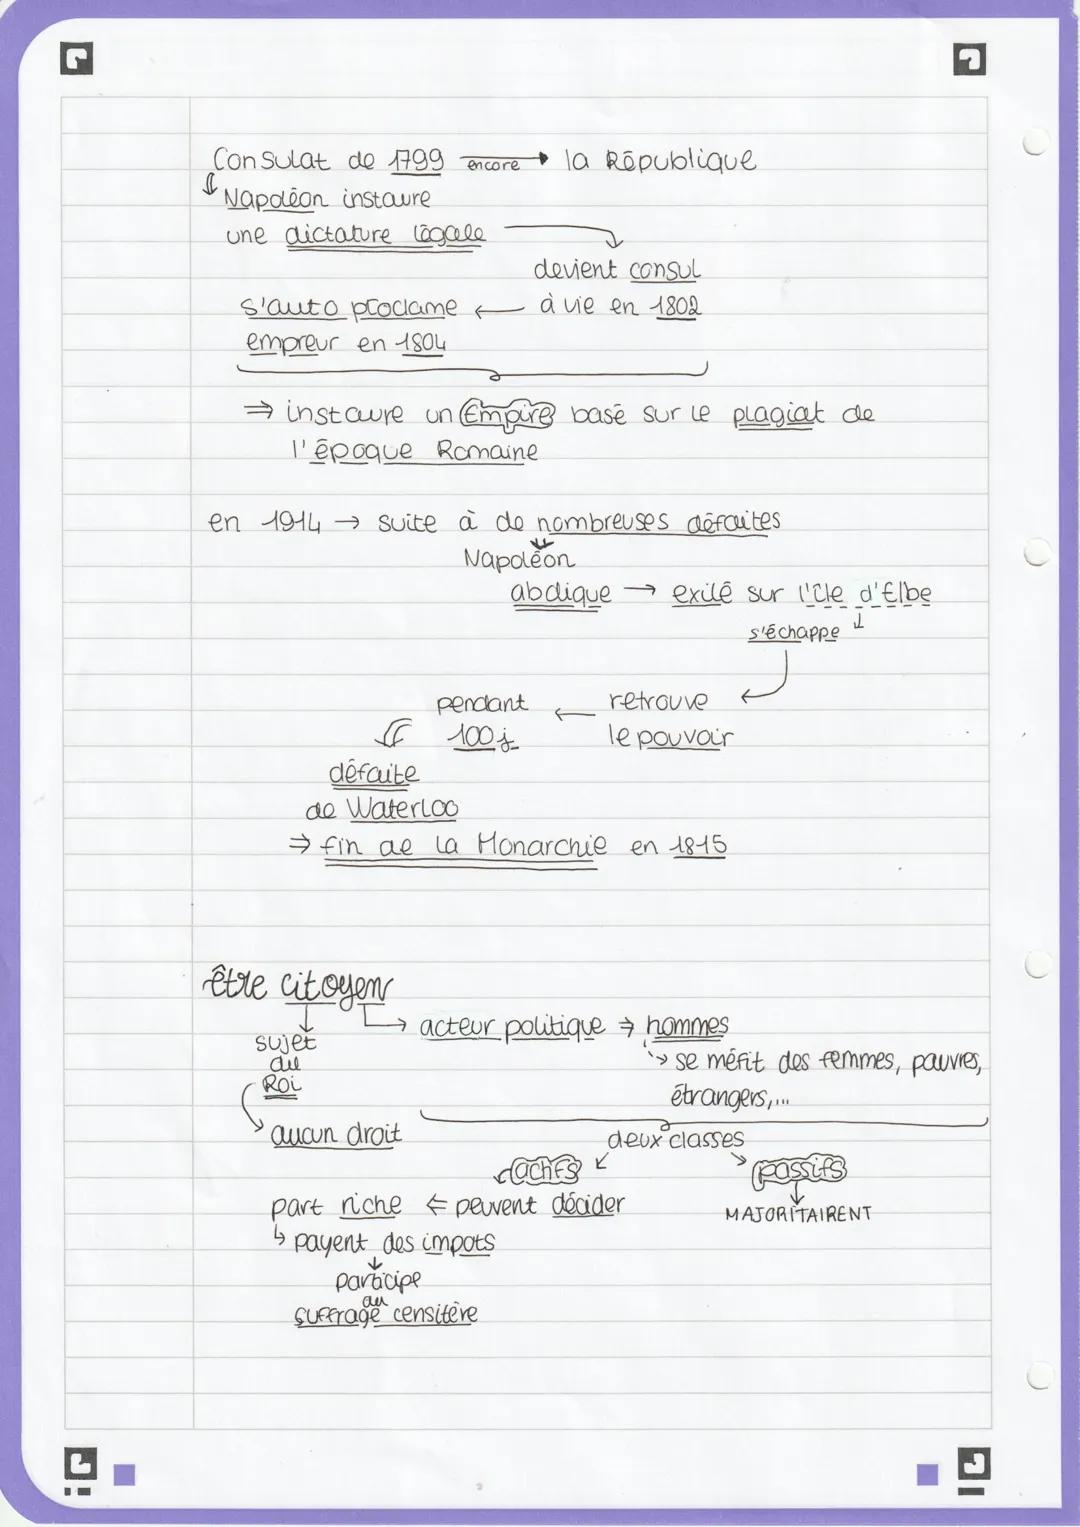 Consulat de 1799 encore → la République
Napoléon instaure
une dictature légale
devient consul
s'auto proclame ← à vie en 1802
empreur en 1804
⇒ instaure un Empire basé sur le plagiat de
l'époque Romaine
en 1914 → suite à de nombreuses défaites
Napoléon
abdique → exilé sur l'île d'Elbe
s'échappe
pendant ← retrouve
100j le pouvoir
défaite
de Waterloo
⇒ fin de la Monarchie en 1815
être citoyen
→ acteur politique ⇒ hommes
sujet
du
Roi
→ se méfit des femmes, pauvres,
étrangers,...
aucun droit
deux classes
actifs
passifs
part riche ⇐ peuvent décider
MAJORITAIRENT
↳ payent des impots
participe
au
suffrage censitère